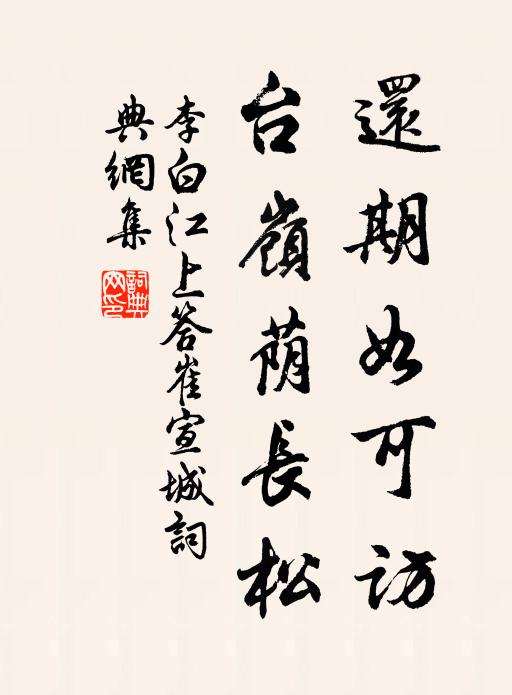 還期如可訪
台嶺蔭長松
李白江上答崔宣城詞
典網集
詞典網印